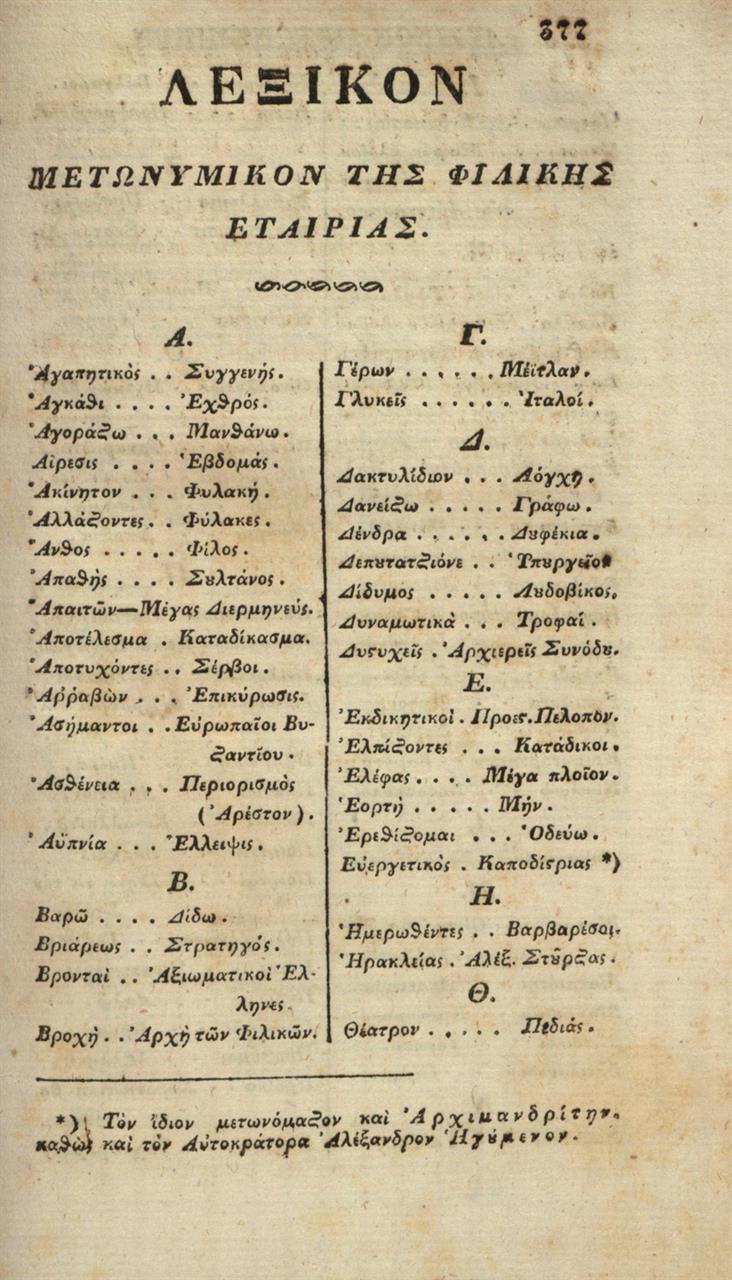 377
ΛΕΞΙΚΟΝ
ΜΕΤΩΝΥΜΙΚΟΝ ΤΗΣ ΦΙΛΙΚΗΣ
ΕΤΑΙΡΙΑΣ.
Α.
Ἀγαπητικὸς . . Συγγενής.
Ἀγκάθι . . . . Ἐχθρός.
Ἀγοράζω . . . Μανθάνω.
Αἵρεσις . . . . Ἑβδομάς.
Ἀκίνητον . . . Φυλακή.
Ἀλλάζοντες . . Φύλακες.
Ἄνθος . . . . . Φίλος.
Ἀπαθὴς . . . . Σȣλτάνος.
Ἀπαιτῶν—Μέγας Διερμηνεύς.
Ἀποτέλεσμα . Καταδίκασμα.
Ἀποτυχόντες . . Σέρβοι.
Ἀῤῥαβὼν . . . Ἐπικύρωσις.
Ἀσήμαντοι . . Εὐρωπαῖοι Βυ-
ζαντίου.
Ἀσθένεια . . . Περιορισμὸς
(Ἀρέστον).
Ἀϋπνία . . . Ἔλλειψις.
Β.
Βαρῶ . . . . Δίδω.
Βριάρεως . . Στρατηγός.
Βρονταὶ . . Ἀξιωματικοὶ Ἕλ-
ληνες.
Βροχὴ . . Ἀρχὴ τῶν Φιλικῶν.
Γ.
Γέρων . . . . . . Μέϊτλαν.
Γλυκεῖς . . . . . . Ἰταλοί.
Δ.
Δακτυλίδιον . . . Λόγχη.
Δανείζω . . . . . Γράφω.
Δένδρα . . . . . . Δȣφέκια.
Δεπȣτατζιόνε . . Ὑπȣργεῖο
Δίδυμος . . . . . Λȣδοβίκος.
Δυναμωτικὰ . . . Τροφαί.
Δυςυχεῖς . Ἀρχιερεῖς Συνόδȣ.
Ε.
Ἐκδικητικοὶ . Προες. Πελοπον.
Ἐλπίζοντες . . . Κατάδικοι.
Ἐλέφας . . . . Μέγα πλοῖον.
Ἑορτὴ . . . . . Μήν.
Ἐρεθίζομαι . . . Ὁδεύω.
Εὐεργετικὸς . Καποδίςριας *)
Η.
Ἡμερωθέντες . . Βαρβαρέσοι.
Ἡρακλείας . Ἀλέξ. Στȣ̂ρζας.
Θ.
Θέατρον . . . . . Πεδιάς.
*) Τὸν ἴδιον μετωνόμαζον καὶ Ἀρχιμανδρίτην.
καθὼς καὶ τὸν Αὐτοκράτορα Ἀλέξανδρον Ἡγȣ́μενον.